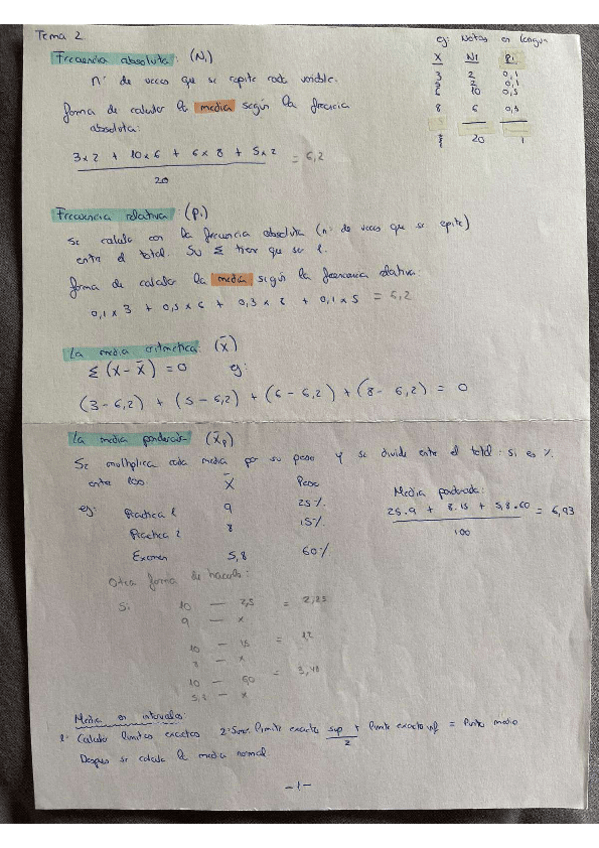 Tema 2
eg: Notas en lengua
Frecuencia absoluta: (Ni)
X Ni Pi
nº de veces que se repite cada variable.
3 2 0,1
5 2 0,1
6 10 0,5
forma de calcular la media según la frecuencia
8 6 0,3
absoluta:
20 1
3x2 + 10x6 + 6x8 + 5x2 = 6,2
20
Frecuencia relativa: (pi)
Se calcula con la frecuencia absoluta (nº de veces que se repite)
entre el total. Su Σ tiene que ser 1.
forma de calcular la media según la frecuencia relativa:
0,1x3 + 0,5x6 + 0,3x8 + 0,1x5 = 6,2
La media aritmética: (X̄)
Σ (X - X̄) = 0 eg:
(3-6,2) + (5-6,2) + (6-6,2) + (8-6,2) = 0
La media ponderada (X̄p)
Se multiplica cada media por su peso y se divide entre el total: si es %.
entre 100
X̄ Peso
Media ponderada:
eg: Practica 1 9 25%
25.9 + 8.15 + 5,8.60 = 6,93
100
Practica 2 8 15%
Examen 5,8 60%
Otra forma de hacerlo:
Si 10 — 2,5 = 2,25
9 — x
10 — 15 = 12
8 — x
10 — 60 = 3,48
5,8 — x
Media en intervalos:
1º Calcular limites exactos 2º limite exacto sup + limite exacto inf = Punto medio
2
Después se calcula la media normal
-1-